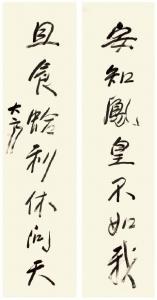 安知鳳皇不如我
且食蛤利休问天
大方